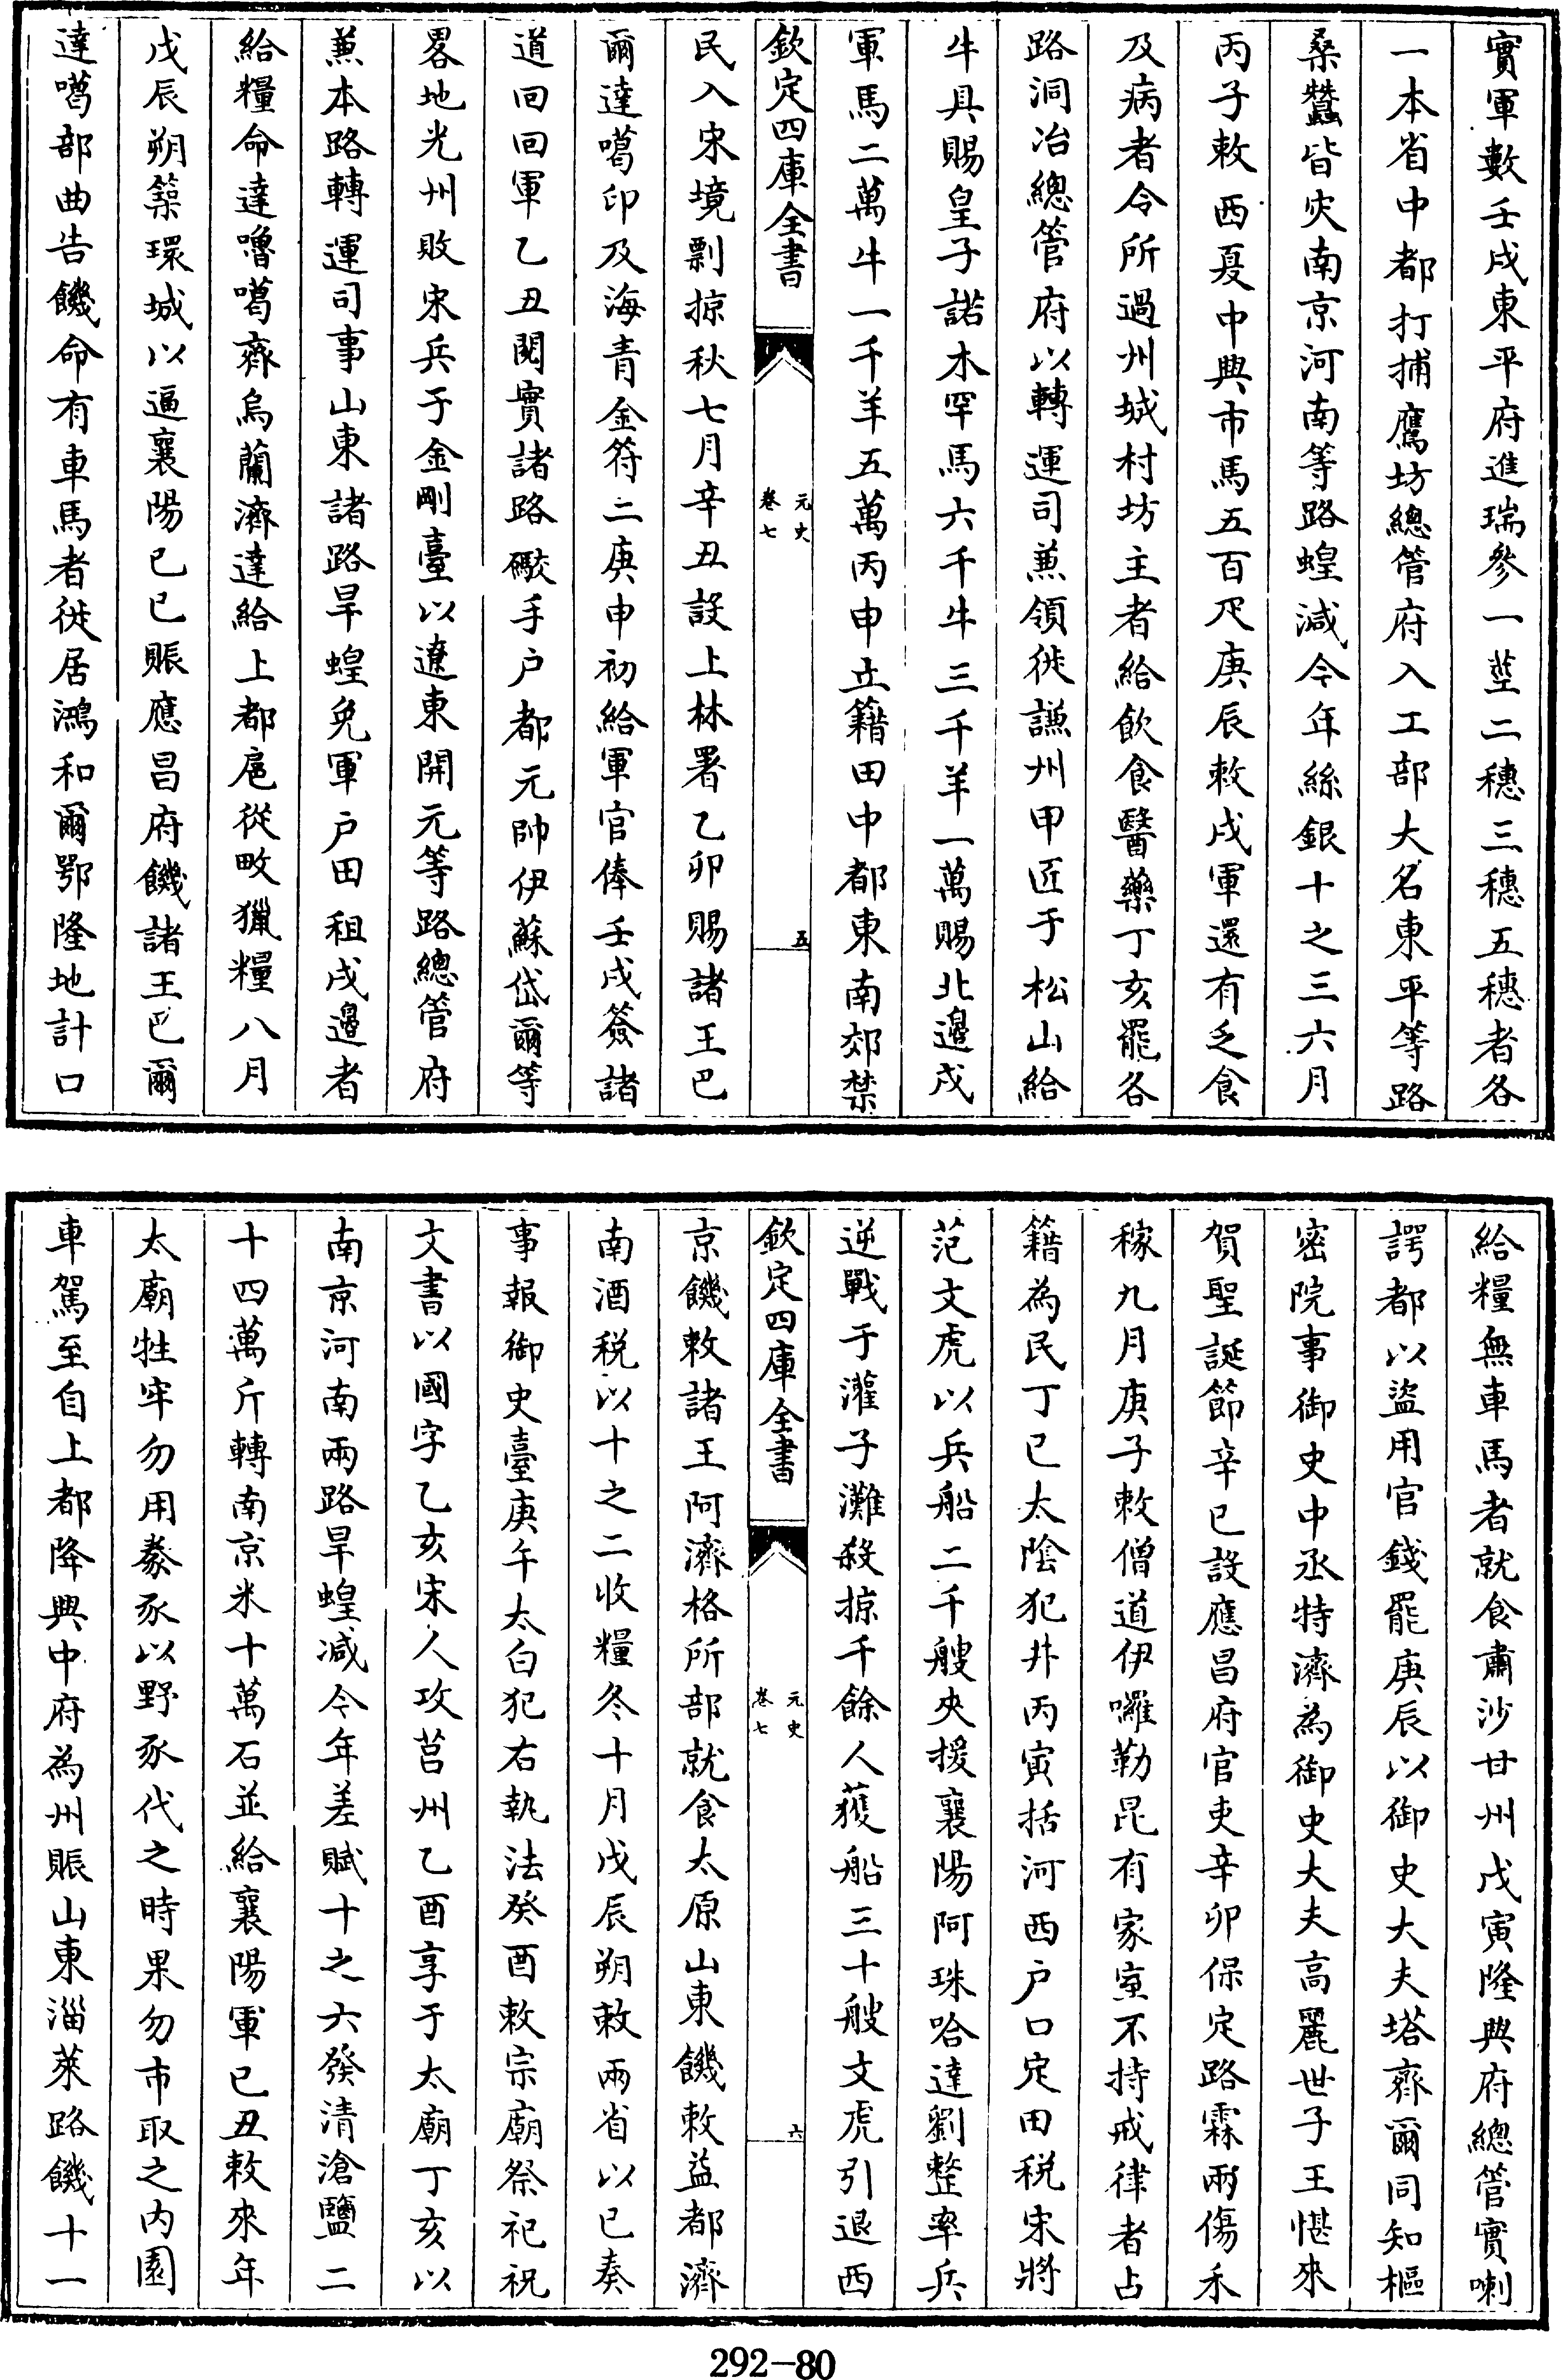 實軍數壬戌東平府進瑞麥一莖二穗三穗五穗者各
一本省中都打捕鷹坊總管府入工部大名東平等路
桑蠶皆灾南京河南等路蝗減今年絲銀十之三六月
丙子敕西夏中興市馬五百疋庚辰敕戍軍還有乏食
及病者令所過州城村坊主者給飲食醫藥丁亥罷各
路洞冶總管府以轉運司兼領徙謙州甲匠于松山給
牛具賜皇子諾木罕馬六千牛三千羊一萬賜北邊戍
軍馬二萬牛一千羊五萬丙申立籍田中都東南郊禁
欽定四庫全書
元史
卷七
五
民入宋境剽掠秋七月辛丑設上林署乙卯賜諸王巴
爾達噶印及海青金符二庚申初給軍官俸壬戌簽諸
道回回軍乙丑閱實諸路礮手户都元帥伊蘇岱爾等
畧地光州敗宋兵于金剛臺以遼東開元等路總管府
兼本路轉運司事山東諸路旱蝗免軍户田租戍邊者
給糧命達嚕噶齊烏蘭濟達給上都扈從畋獵糧八月
戊辰朔築環城以逼襄陽己巳賑應昌府饑諸王巴爾
達噶部曲告饑命有車馬者徙居鴻和爾鄂隆地計口
給糧無車馬者就食肅沙甘州戊寅隆興府總管實喇
諤都以盜用官錢罷庚辰以御史大夫塔齊爾同知樞
密院事御史中丞特濟為御史大夫高麗世子王愖來
賀聖誕節辛巳設應昌府官吏辛卯保定路霖雨傷禾
稼九月庚子敕僧道伊囉勒昆有家室不持戒律者占
籍為民丁巳太陰犯井丙寅括河西户口定田税宋將
范文虎以兵船二千艘來援襄陽阿珠哈達劉整率兵
逆戰于灌子灘殺掠千餘人獲船三十艘文虎引退西
欽定四庫全書
元史
卷七
六
京饑敕諸王阿濟格所部就食太原山東饑敕益都濟
南酒税以十之二收糧冬十月戊辰朔敕兩省以已奏
事報御史臺庚午太白犯右執法癸酉敕宗廟祭祀祝
文書以國字乙亥宋人攻莒州乙酉享于太廟丁亥以
南京河南兩路旱蝗減今年差賦十之六發清滄鹽二
十四萬斤轉南京米十萬石並給襄陽軍己丑敕來年
太廟牲牢勿用豢豕以野豕代之時果勿市取之内園
車駕至自上都降興中府為州賑山東淄萊路饑十一
292-80